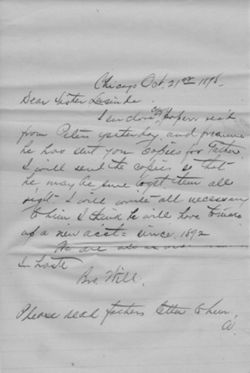 Chicago Oct. 21st 1895
Dear Sister Lucinda.
I
from Peter yesterday, and presume
he has sent you copies for Father
I will send the copies so that
he may be sure to get them all
right - I will write all necessary
to him I think he will have to make
up a new acct - since 1892
We are
In haste
Bro Will.
Please read father's letter to him.
W.